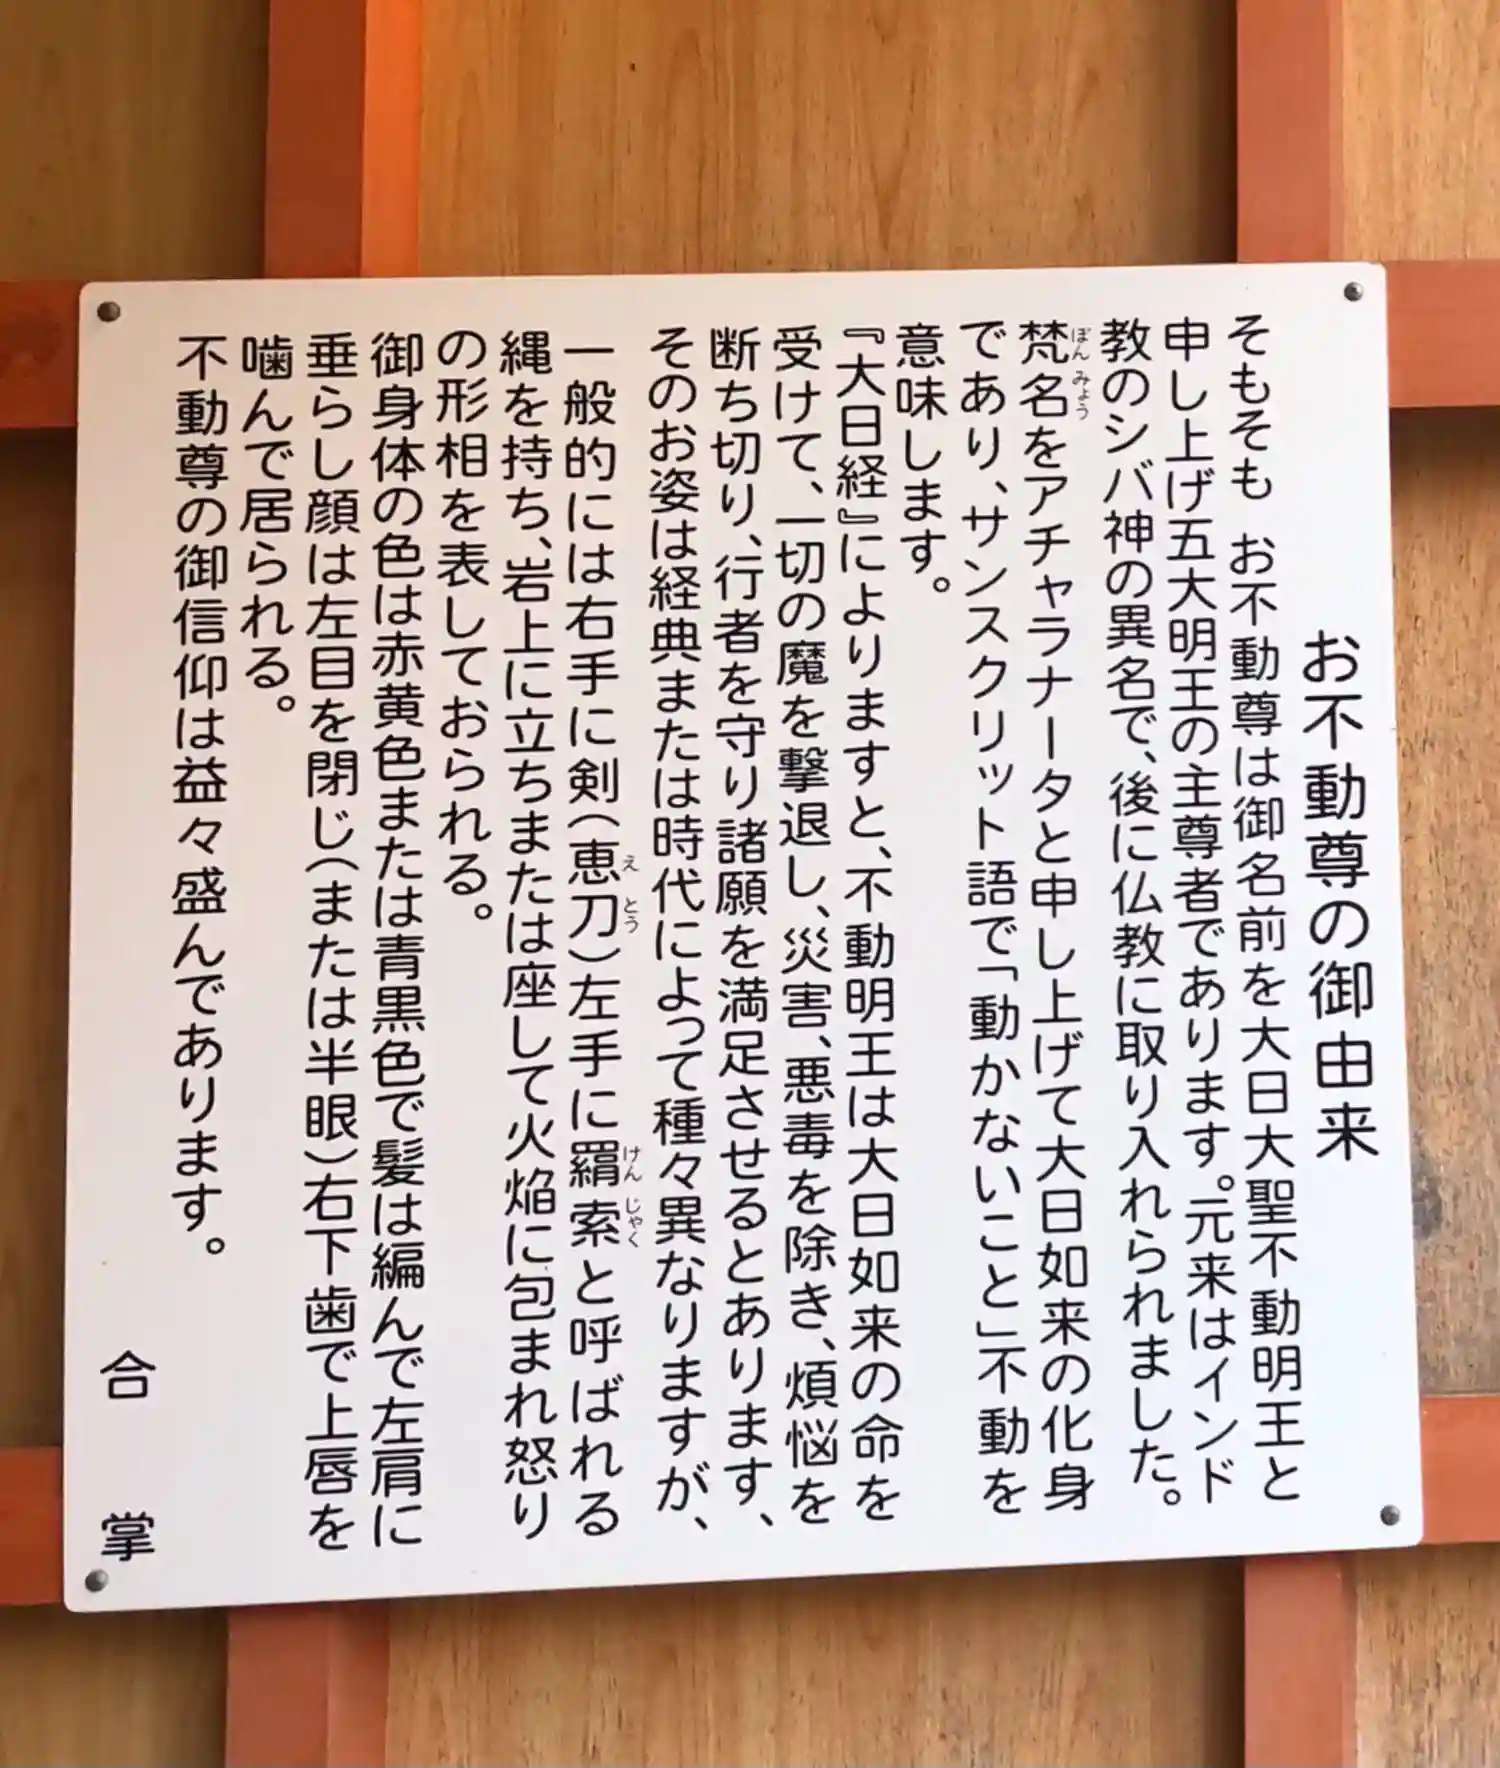 お不動尊の御由来
そもそも お不動尊は御名前を大日大聖不動明王と
申し上げ五大明王の主尊者であります。元来はインド
教のシバ神の異名で、後に仏教に取り入れられました。
梵名をアチャラナータと申し上げて大日如来の化身
ぼんみょう
であり、サンスクリット語で「動かないこと」不動を
意味します。
『大日経』によりますと、不動明王は大日如来の命を
受けて、一切の魔を撃退し、災害、悪毒を除き、煩悩を
断ち切り、行者を守り諸願を満足させるとあります、
そのお姿は経典または時代によって種々異なりますが、
一般的には右手に剣(恵刀)左手に羂索と呼ばれる
えとう けんじゃく
縄を持ち、岩上に立ちまたは座して火焔に包まれ怒り
の形相を表しておられる。
御身体の色は赤黄色または青黒色で髪は編んで左肩に
垂らし顔は左目を閉じ(または半眼)右下歯で上唇を
噛んで居られる。
不動尊の御信仰は益々盛んであります。
合掌